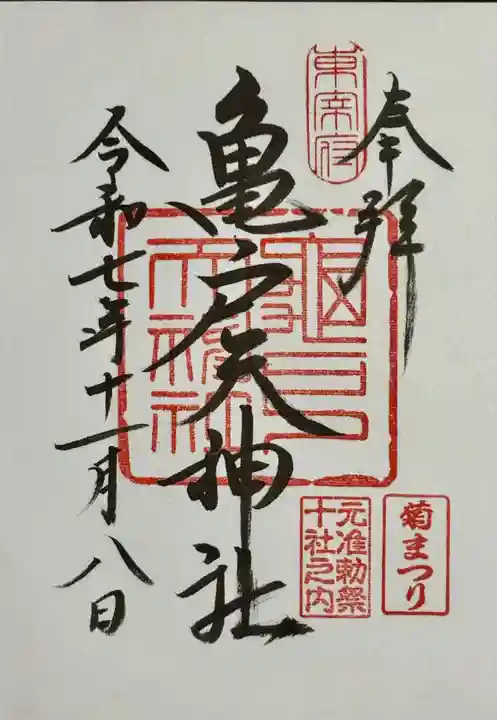 奉拝
亀戸天神社
令和七年十一月八日
東宰府
亀戸天神社
菊まつり
元准勅祭
十社之内